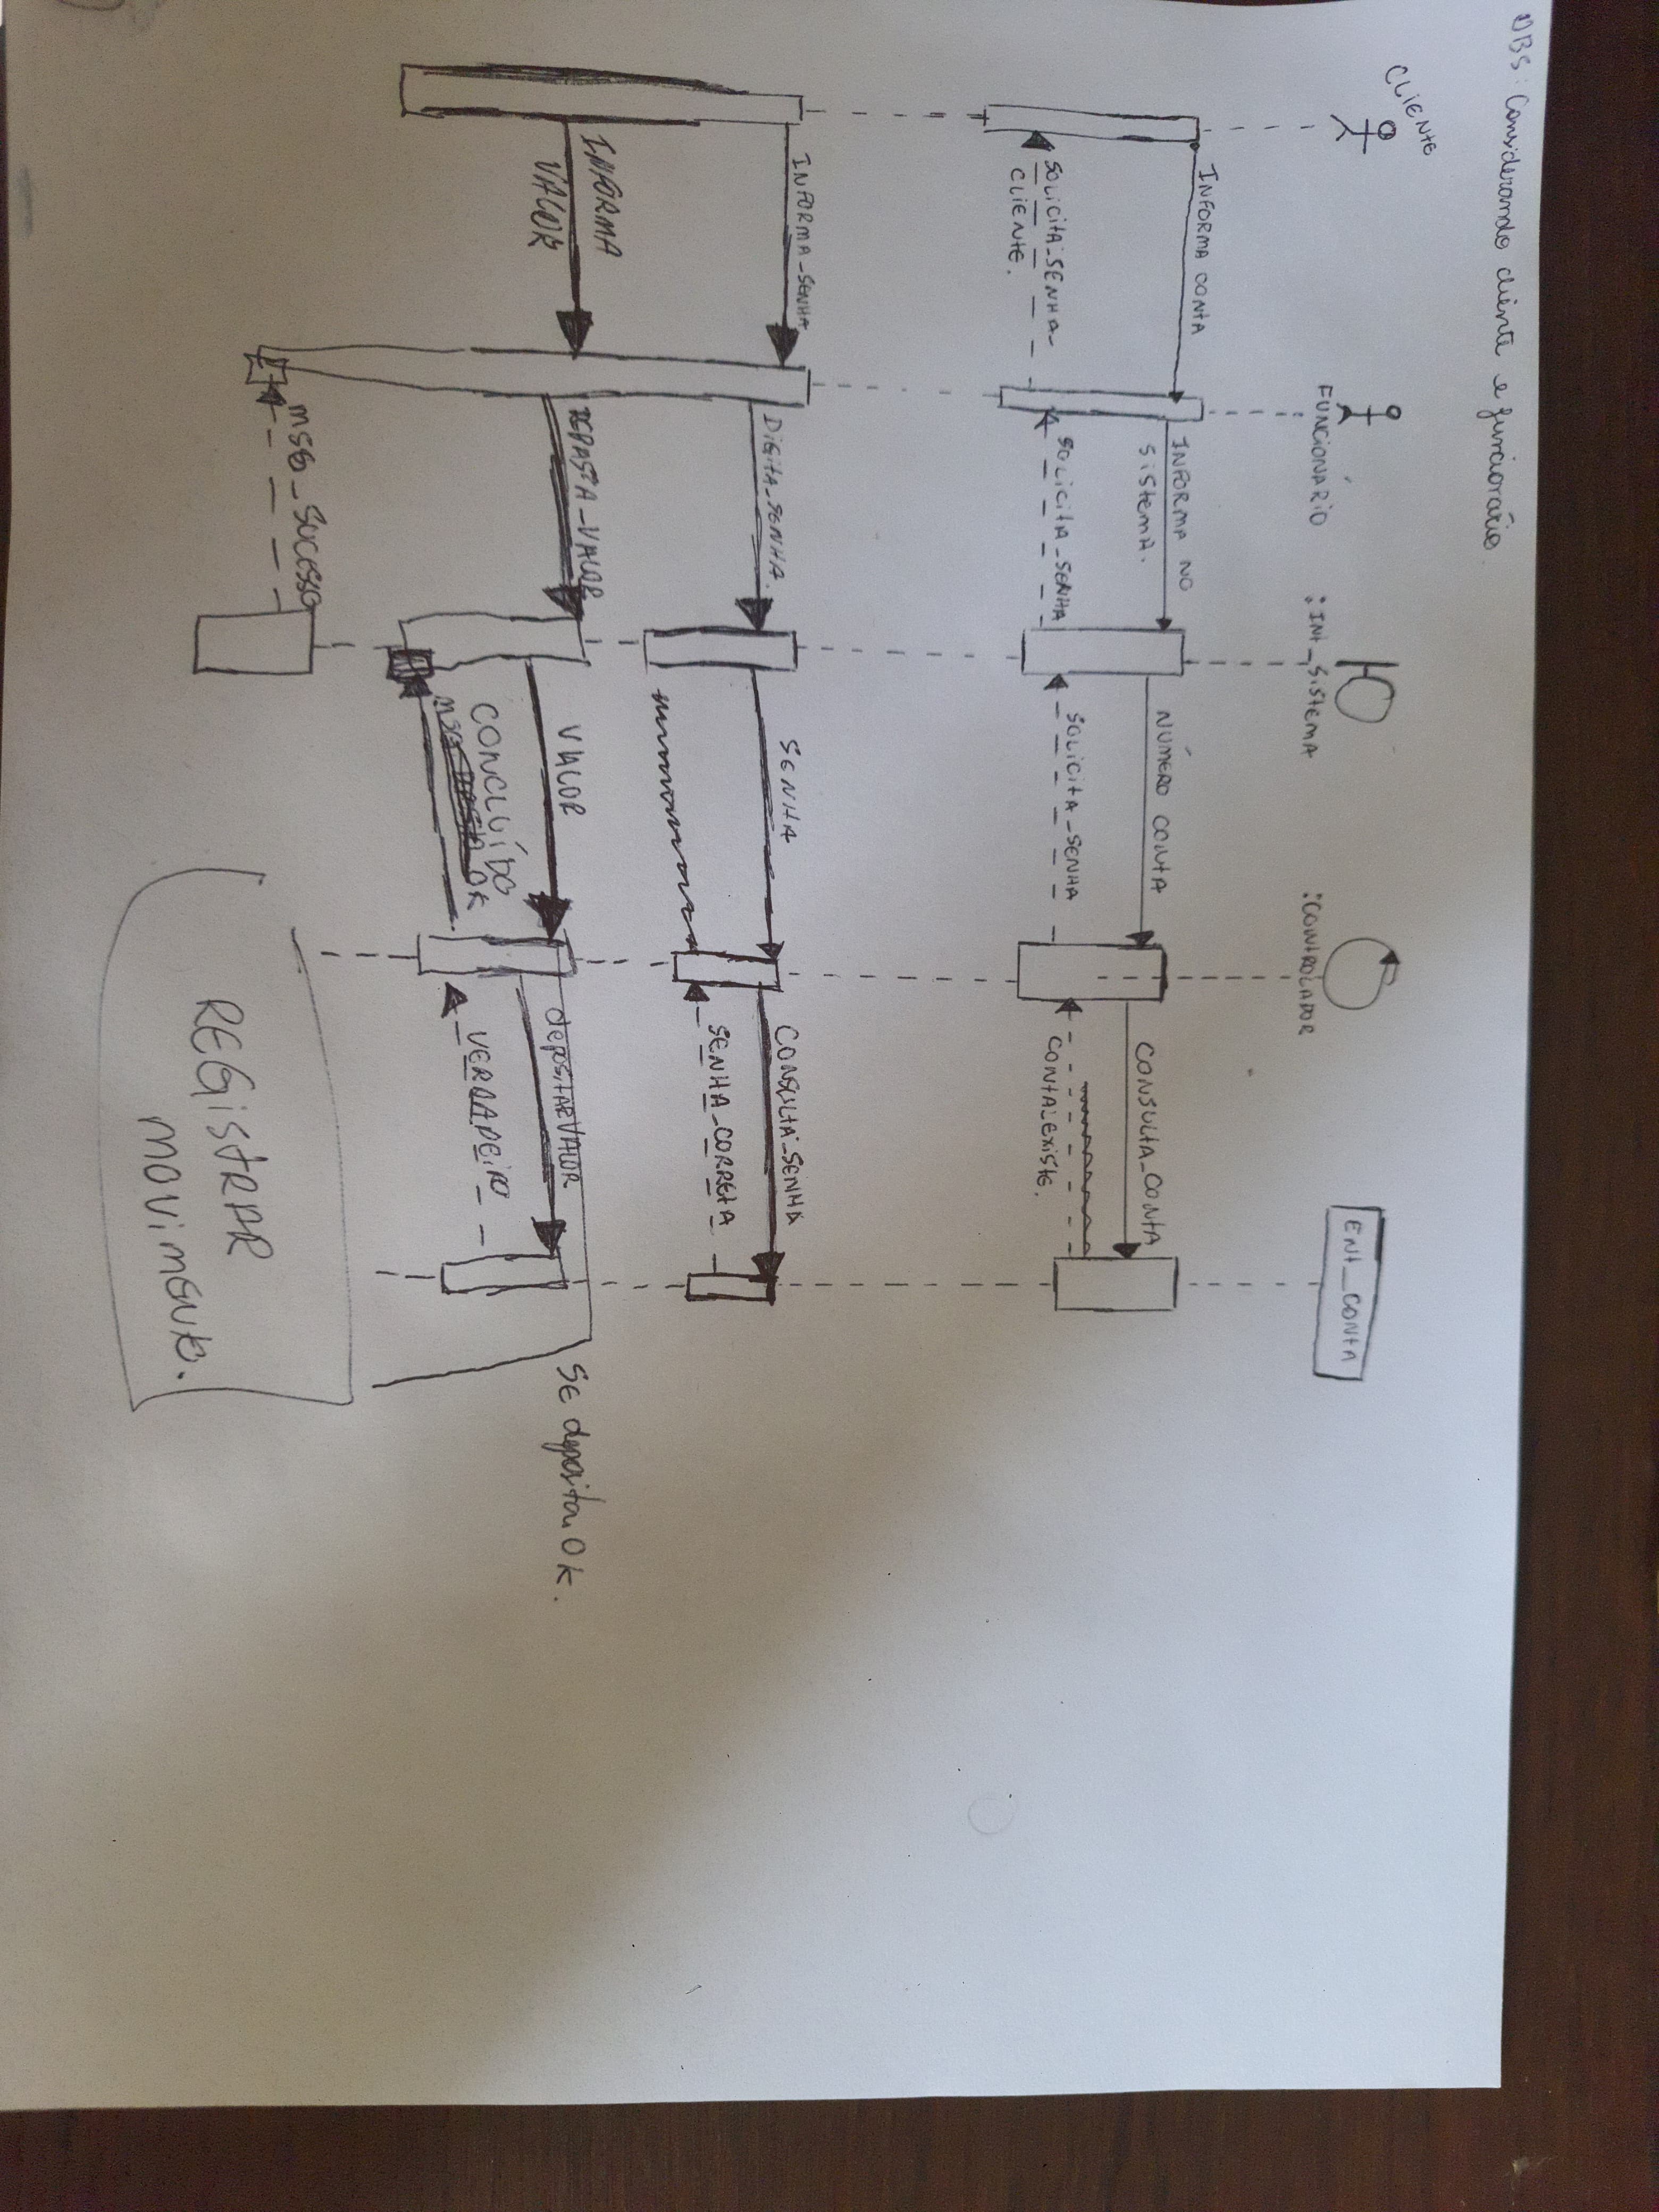 OBS: Considerando cliente e funcionário.
CLIENTE
FUNCIONÁRIO
:INT_SISTEMA
:CONTROLADOR
ENT_CONTA
INFORMA CONTA
INFORMA NO
SISTEMA.
NÚMERO CONTA
CONSULTA_CONTA
SOLICITA_SENHA_
CLIENTE.
SOLICITA_SENHA
SOLICITA_SENHA
CONTA_EXISTE.
INFORMA_SENHA
DIGITA_SENHA.
SENHA
CONSULTA_SENHA
SENHA_CORRETA
INFORMA
VALOR
REPASSA_VALOR
VALOR
depositarVALOR
Se depositou Ok.
CONCLUÍDO
OK
VERDADEIRO
MSG_SUCESSO
REGISTRAR
MOVIMENTO.